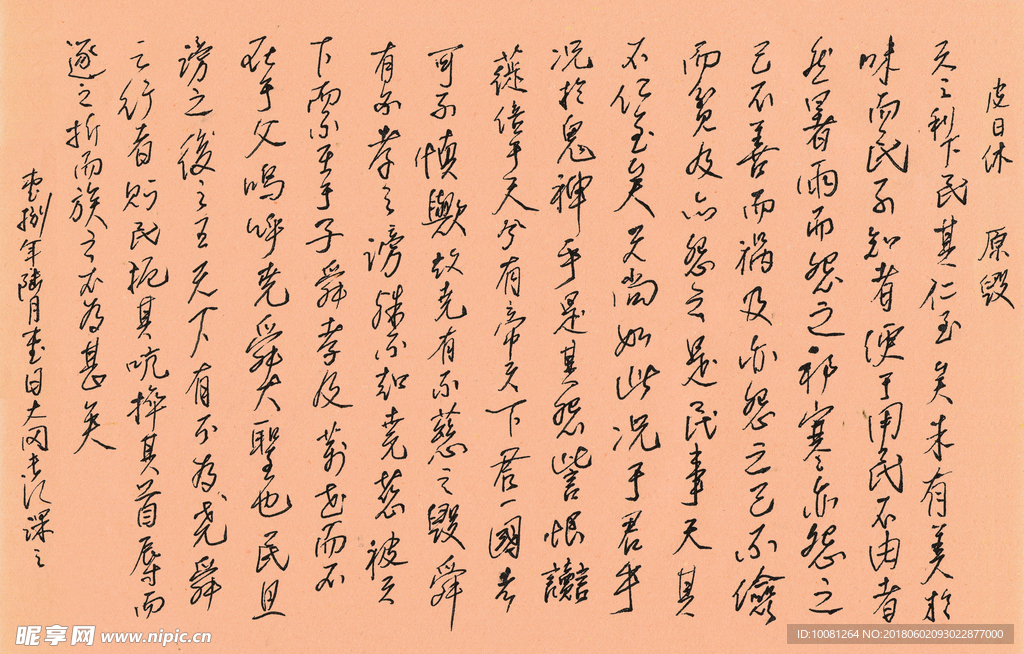 皮日休 原毁
天之利下民其仁至矣未有美于
味而民不知者便于用民不由者
然暑雨而怨之祁寒亦怨之
己不善而祸及亦怨之己不俭
而贫及亦怨之是民事天其
不仁至矣天尚如此况于君乎
况于鬼神乎是其怨訾恨讟
蓰倍于天矣有帝天下君一國者
可不慎歟故堯有不慈之毁舜
有不孝之謗殊不知堯慈被天
下而不在于子舜孝及萬世而不
在于父嗚呼堯舜大聖也民且
謗之後之王天下有不為堯舜
之行者則民扼其吭捽其首辱而
逐之折而族之不為甚矣
壹捌年陆月壹日大
昵享网 www.nipic.cn
ID:10081264 NO:20180602093022877000